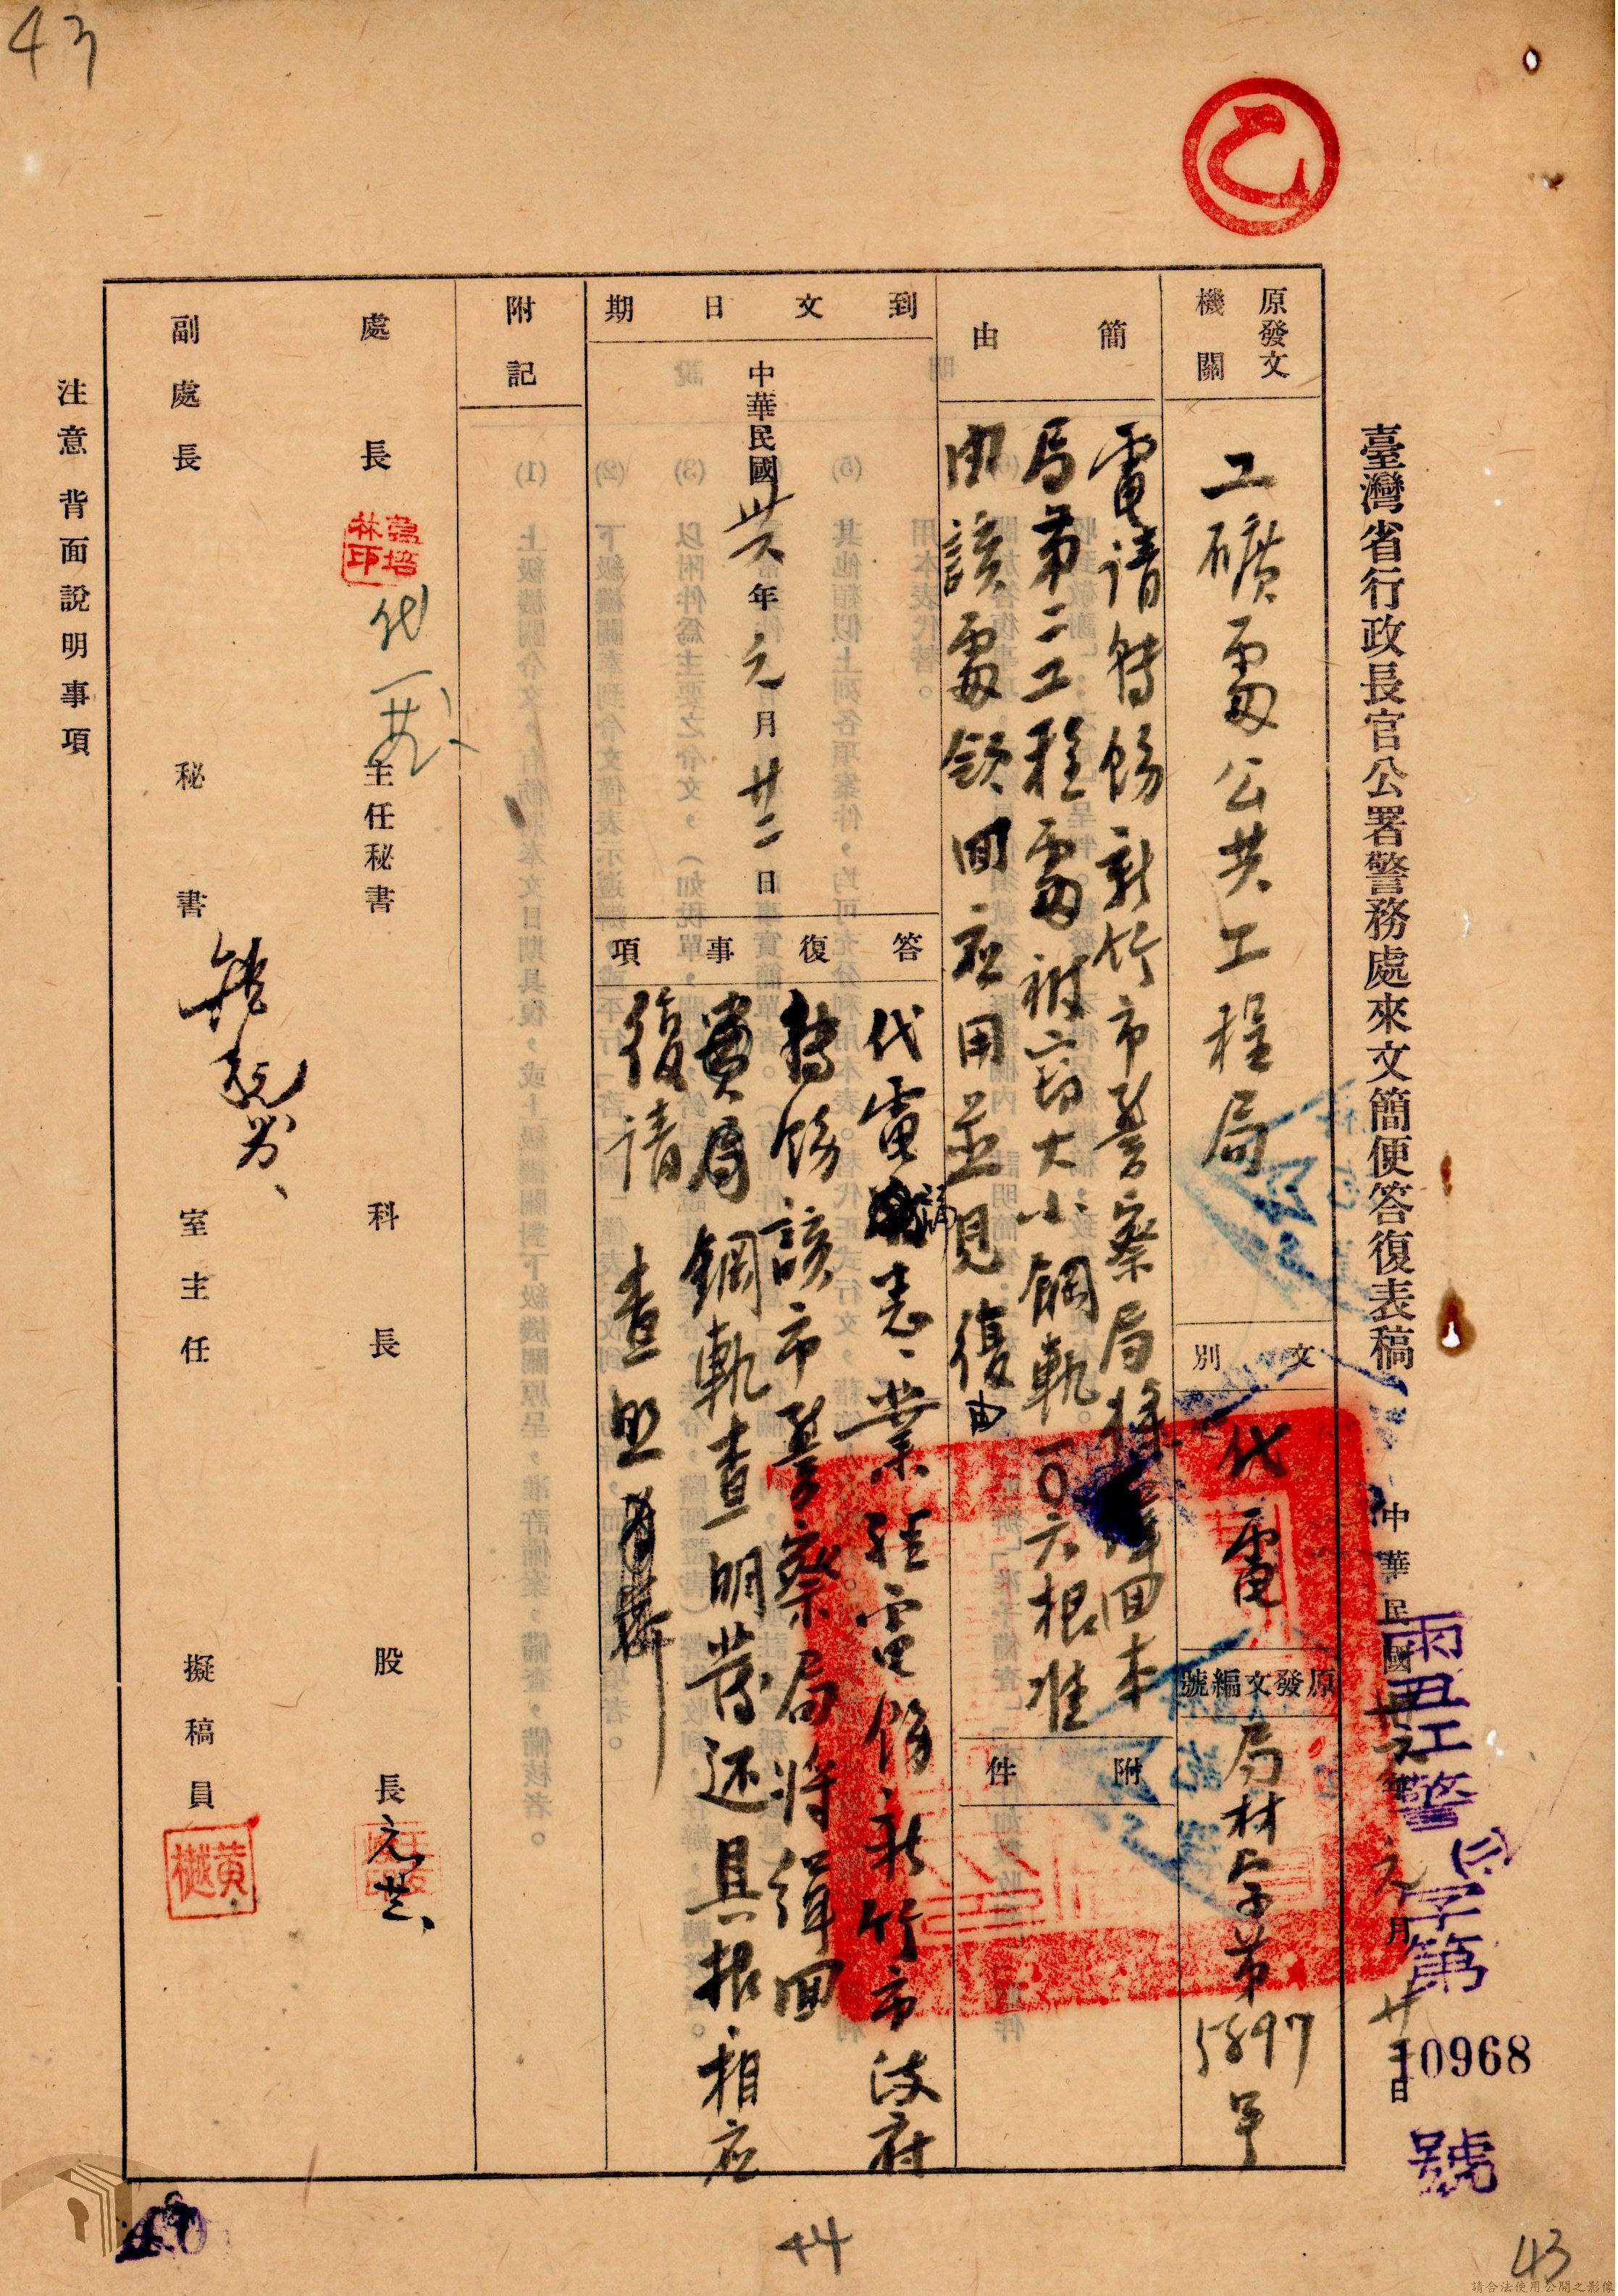 43
乙
臺灣省行政長官公署警務處來文簡便答復表稿
中華民國卅六年元月廿 日
丑江警 字第10968號
原發文機關
工礦處公共工程局
文別
代電
原發文編號
局材字第5897号
簡由
電請轉飭新竹市警察局將緝回本
局第二工程處被竊大小鋼軌一〇六根准
由該處領回应用並見復由
附件
到文日期
中華民國卅六年元月廿二日
答復事項
代電誦悉、業經電飭新竹市政府
轉飭該市警察局將緝回
貴局鋼軌查明發还具报相应
復請 查照
附記
處長
主任秘書
科長
股長
副處長
秘書
室主任
擬稿員
黃樾
代
注意背面說明事項
44
43
請合法使用公開之影像